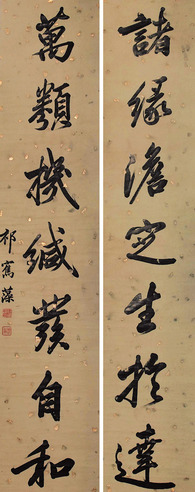 諸緣澹定生於達
萬類機緘發自和
祁寯藻